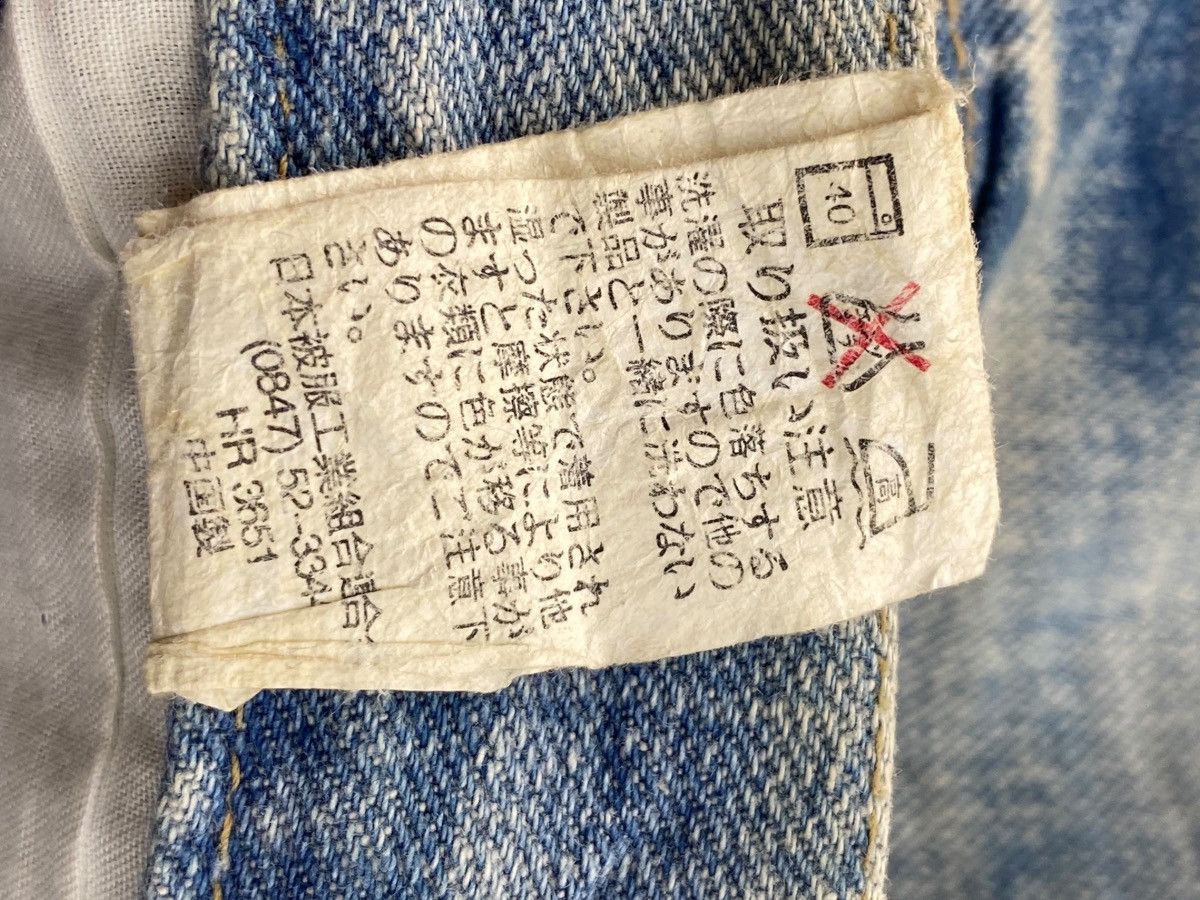 40
高
取り扱い注意
洗濯の際に色落ちする
事がありますので他の
製品と一緒に洗わない
で下さい。
湿った状態で着用され
ますと摩擦等により他
の衣類に色が移る事が
ありますのでご注意下
さい。
日本被服工業組合連合
(0847) 52-334
HR 3651
中国製